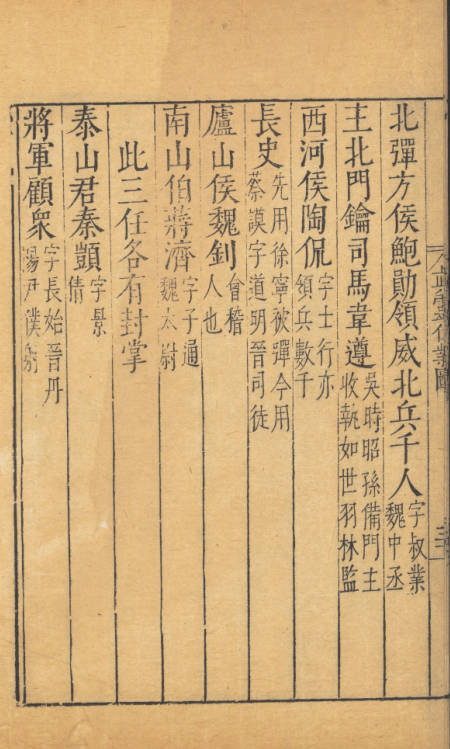 北彈方侯鮑勛領威北兵千人字叔業魏中丞
主北門鑰司馬韋遵吳時昭孫備門主收執如世羽林監
西河侯陶侃字士行亦領兵數千
長史先用徐寧被彈今用蔡謨字道明晉司徒
廬山侯魏釗會稽人也
南山伯蔣濟字子通魏太尉
此三任各有封掌
泰山君秦顗字景倩
將軍顧衆字長始晉丹陽尹僕射